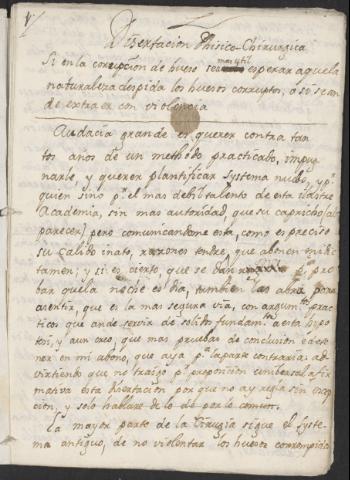 1/
Disertacion Phisico-Chirurgica
Si en la corrupcion de hueso sea mas util esperar a que la
naturaleza despida los huesos corruptos, o si sean
de extraer con violencia
Audacia grande es querer contra tan
tos años de un methodo practicado, impug
narle, y querer plantificar systema nuebo, y pr.
quien sino pr. el mas debil talento de esta ilustre
Academia, sin mas autoridad, que su capricho (al
parecer) pero comunicandome esta, como es preciso
su calido inato, razones tendre, que abonen mi dic
tamen; y si es cierto, que se dan pa. pro
bar que la noche es dia, tambien las abra para
asentir, que es la mas segura via, con argumtos. prac
ticos que ande servir de solidos fundamtos. a esta hypo
tesi, y aun creo, que mas pruebas de conclusion e de te
ner en mi abono, que aya pr. la parte contraria: ad
virtiendo que no traigo pr. proposicion unibersal afir
mativa esta disertacion por que no ay regla sin excep
cion, y solo hablare de lo de por lo comun.
La mayor parte de la Cirugia sigue el syste
ma antiguo, de no violentar los huesos corrompidos